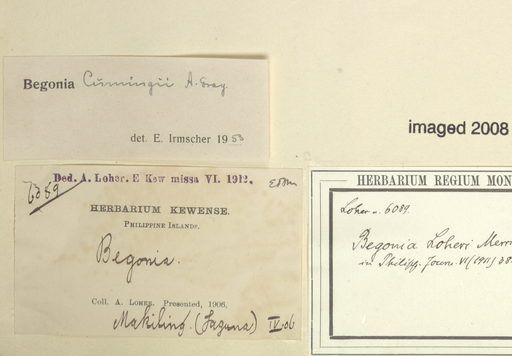 Begonia Cumingii A. Gray.
det. E. Irmscher 1953
imaged 2008
Ded. A. Loher. E Kew missa VI. 1912.
6089
HERBARIUM KEWENSE.
PHILIPPINE ISLANDS.
Begonia.
Coll. A. LOHER. Presented, 1906.
Makiling. (Laguna) IV.06
HERBARIUM REGIUM MON
Loher n. 6089.
Begonia Loheri Merr
in Philipp. Journ. VI (1911) 38